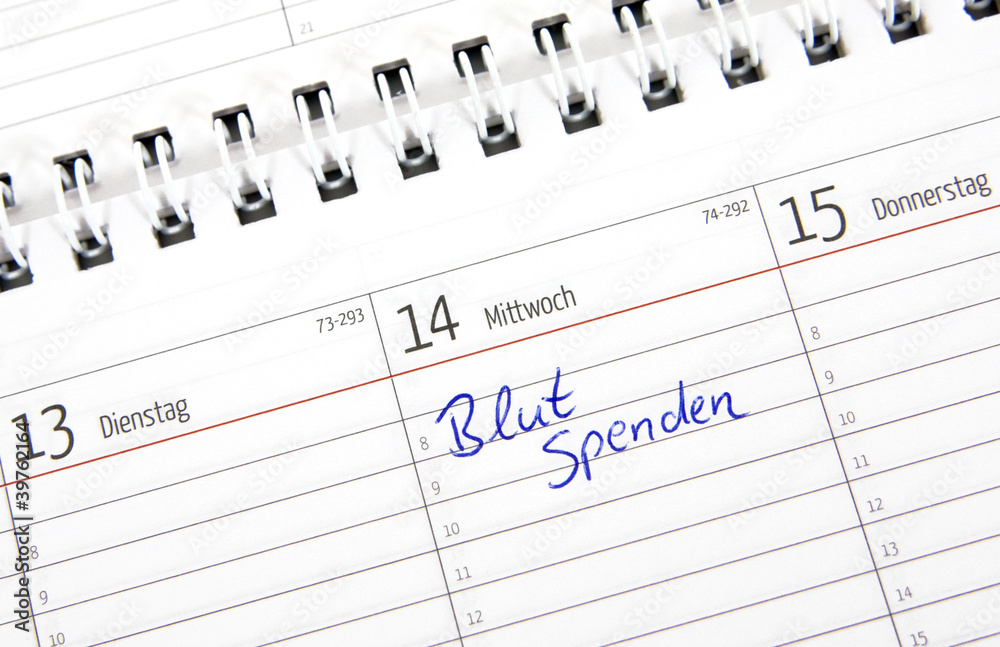 21
73-293
74-292
13 Dienstag
14 Mittwoch
15 Donnerstag
Blut
Spenden
8
9
10
8
9
10
11
12
8
9
10
11
12
13
14
15
Adobe Stock | #39762164